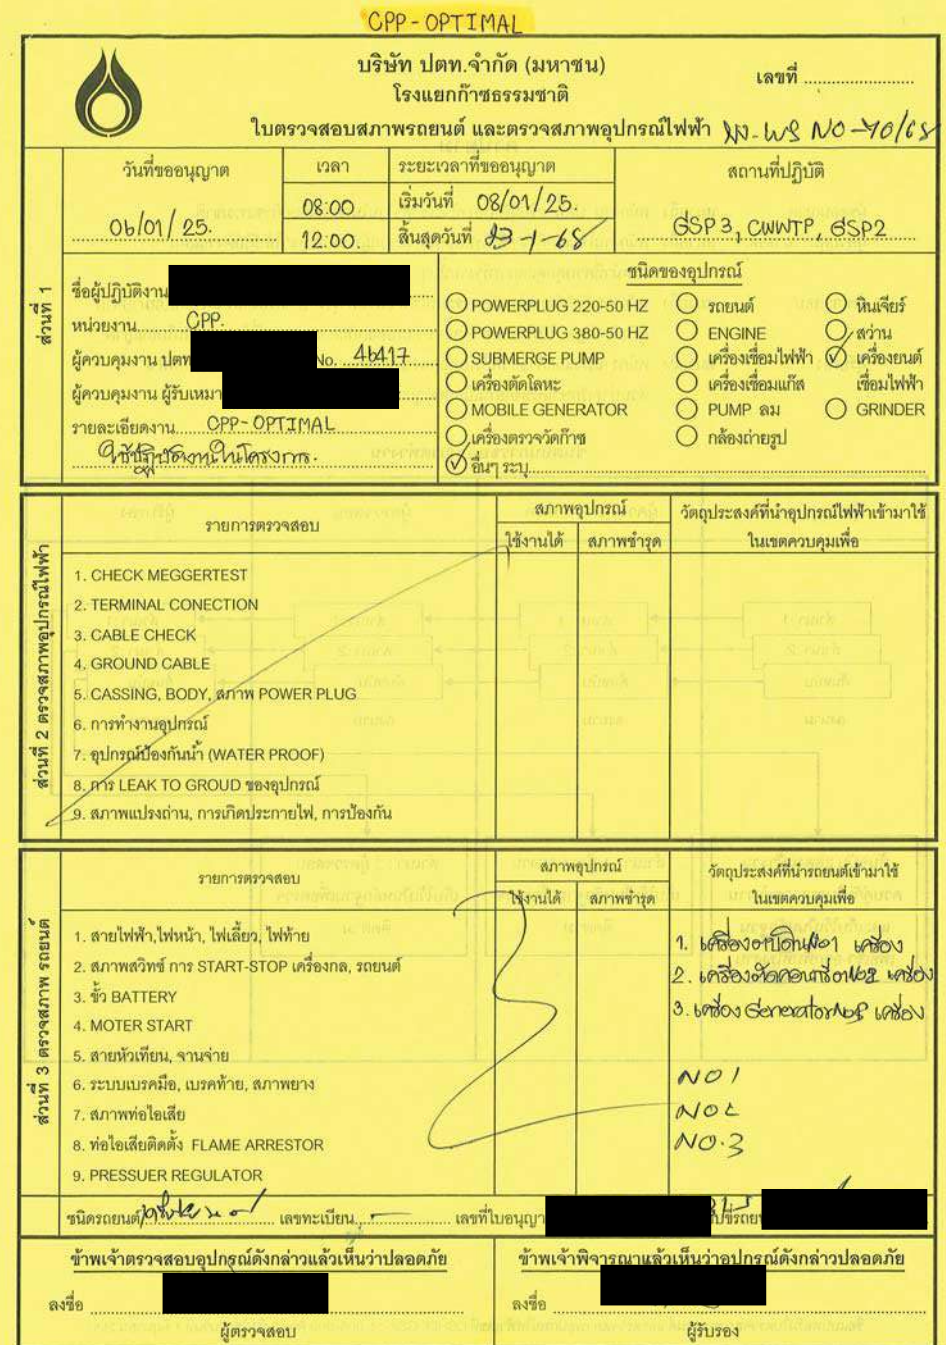 CPP-OPTIMAL
บริษัท ปตท.จำกัด (มหาชน)
โรงแยกก๊าซธรรมชาติ
เลขที่
ใบตรวจสอบสภาพรถยนต์ และตรวจสภาพอุปกรณ์ไฟฟ้า
NO-70/68
วันที่ขออนุญาต
เวลา
ระยะเวลาที่ขออนุญาต
สถานที่ปฏิบัติ
06/01/25.
08:00
12:00.
เริ่มวันที่ 08/01/25.
สิ้นสุดวันที่ 23-1-68
GSP3, CWWTP, GSP2
ส่วนที่ 1
ชื่อผู้ปฏิบัติงาน
หน่วยงาน CPP.
ผู้ควบคุมงาน ปตท No. 46417
ผู้ควบคุมงาน ผู้รับเหมา
รายละเอียดงาน CPP-OPTIMAL
ใช้ปฏิบัติงานในโครงการ.
ชนิดของอุปกรณ์
POWERPLUG 220-50 HZ
รถยนต์
หินเจียร์
POWERPLUG 380-50 HZ
ENGINE
สว่าน
SUBMERGE PUMP
เครื่องเชื่อมไฟฟ้า
เครื่องยนต์
เชื่อมไฟฟ้า
เครื่องตัดโลหะ
เครื่องเชื่อมแก๊ส
MOBILE GENERATOR
PUMP ลม
GRINDER
เครื่องตรวจวัดก๊าซ
กล้องถ่ายรูป
อื่นๆ ระบุ
ส่วนที่ 2 ตรวจสภาพอุปกรณ์ไฟฟ้า
รายการตรวจสอบ
สภาพอุปกรณ์
ใช้งานได้
สภาพชำรุด
วัตถุประสงค์ที่นำอุปกรณ์ไฟฟ้าเข้ามาใช้
ในเขตควบคุมเพื่อ
1. CHECK MEGGERTEST
2. TERMINAL CONECTION
3. CABLE CHECK
4. GROUND CABLE
5. CASSING, BODY, สภาพ POWER PLUG
6. การทำงานอุปกรณ์
7. อุปกรณ์ป้องกันน้ำ (WATER PROOF)
8. การ LEAK TO GROUD ของอุปกรณ์
9. สภาพแปรงถ่าน, การเกิดประกายไฟ, การป้องกัน
ส่วนที่ 3 ตรวจสภาพ รถยนต์
รายการตรวจสอบ
สภาพอุปกรณ์
ใช้งานได้
สภาพชำรุด
วัตถุประสงค์ที่นำรถยนต์เข้ามาใช้
ในเขตควบคุมเพื่อ
1. สายไฟฟ้า,ไฟหน้า, ไฟเลี้ยว, ไฟท้าย
2. สภาพสวิทซ์ การ START-STOP เครื่องกล, รถยนต์
3. ขั้ว BATTERY
4. MOTER START
5. สายหัวเทียน, จานจ่าย
6. ระบบเบรคมือ, เบรคท้าย, สภาพยาง
7. สภาพท่อไอเสีย
8. ท่อไอเสียติดตั้ง FLAME ARRESTOR
9. PRESSUER REGULATOR
1. เครื่องตบดิน No1 เครื่อง
2. เครื่องตัดคอนกรีต No2 เครื่อง
3. เครื่อง Generator เครื่อง
NO1
NO2
NO.3
ชนิดรถยนต์ เลขทะเบียน - เลขที่ใบอนุญา
ข้าพเจ้าตรวจสอบอุปกรณ์ดังกล่าวแล้วเห็นว่าปลอดภัย
ลงชื่อ
ผู้ตรวจสอบ
ข้าพเจ้าพิจารณาแล้วเห็นว่าอุปกรณ์ดังกล่าวปลอดภัย
ลงชื่อ
ผู้รับรอง